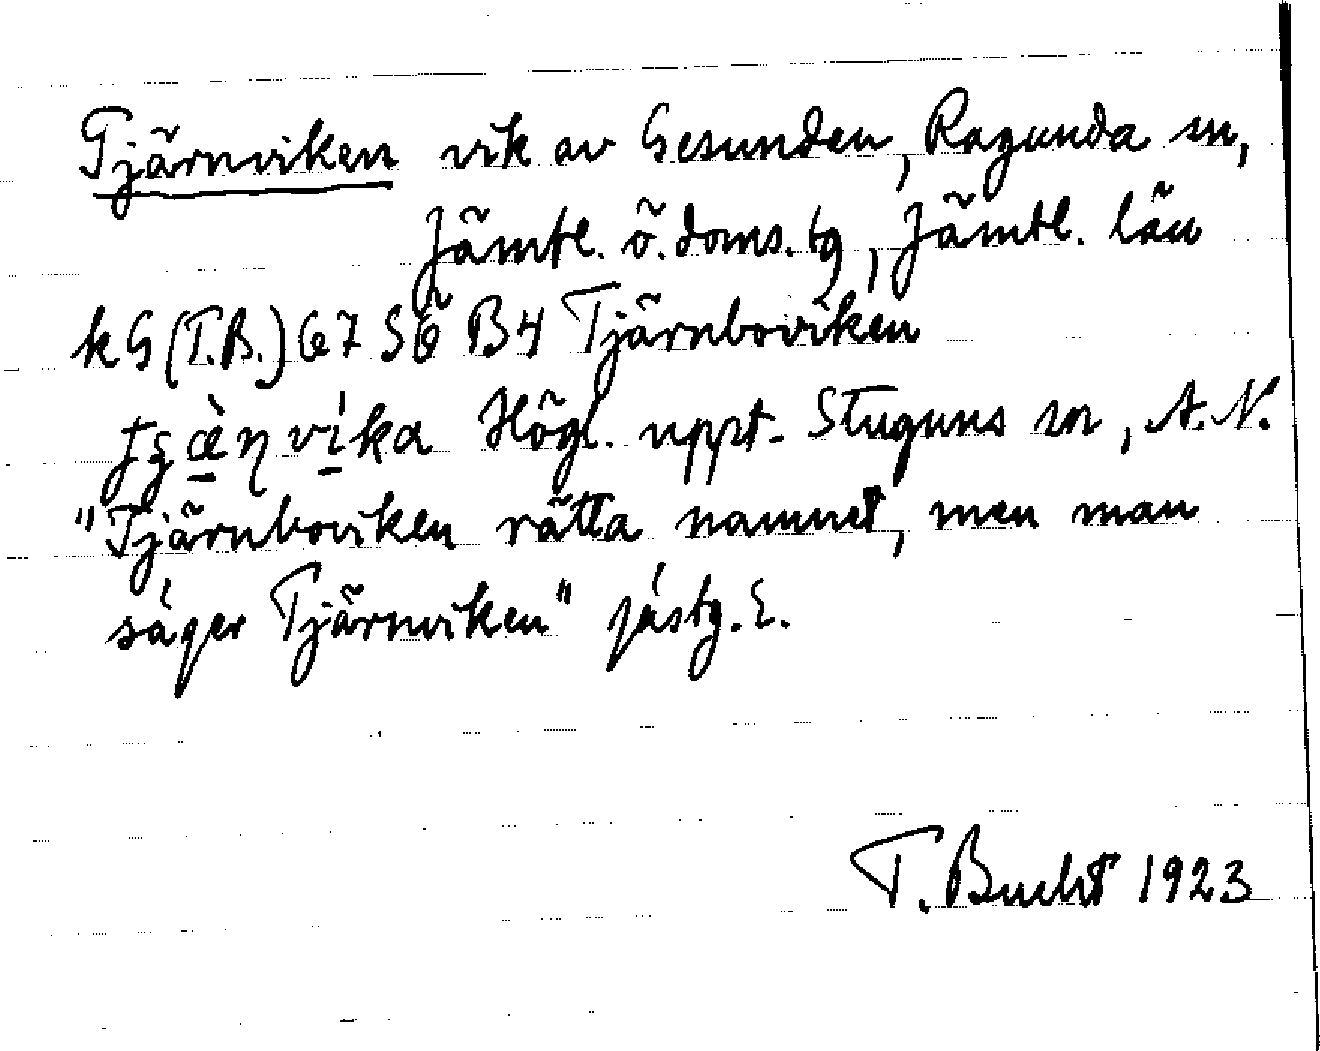 Tjärnviken vik av Gesunden, Ragunda sn,
Jämtl. ö. doms. tg, Jämtl. län
kG (T.B.) 67 SÖ B4 Tjärnboviken
vìka Högl. uppt. Stuguns sn, A.N.
"Tjärnboviken rätta namnet, men man
säger Tjärnviken" jästg. E.
T. Bucht 1923